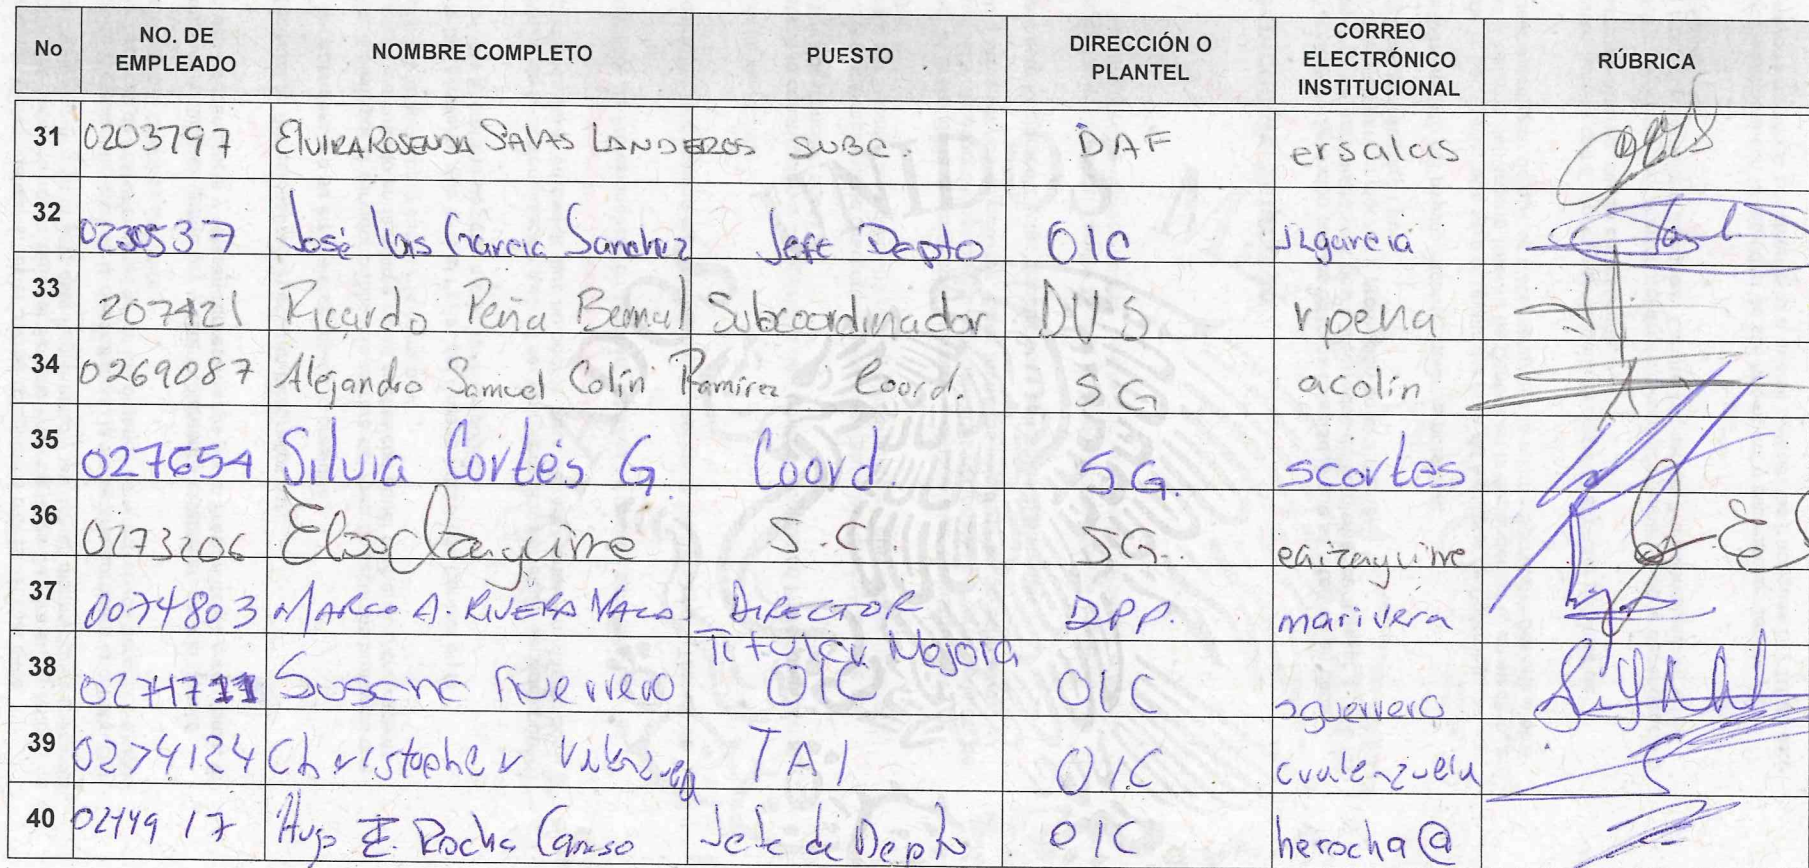 No NO. DE EMPLEADO NOMBRE COMPLETO PUESTO DIRECCIÓN O PLANTEL CORREO ELECTRÓNICO INSTITUCIONAL RÚBRICA
31 0203797 ElviRA ROSENDA SAlAS LANDEROS SUBC. DAF ersalas
32 José luis García Sanchez Jefe Depto OIC jlgarcia
33 207421 Ricardo Peña Bernal Subcoordinador DVS rpena
34 0269087 Alejandro Samuel Colín Ramírez Coord. SG acolin
35 027654 Silvia Cortés G. Coord. S.G. scortes
36 0273206 S.C. SG.
37 0074803 MARCO A. RIVERA DIRECTOR DPP. marivera
38 Susana Guerrero Titular Mejora OIC OIC sguerrero
39 0274124 Christopher Valenzuela TAI OIC cvalenzuela
40 Hugo E. Rocha Jefe de Depto OIC herocha@